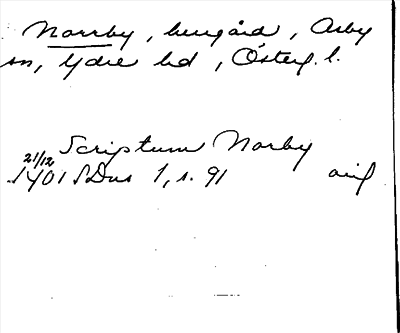 Norrby, herrgård, Asby
sn, Ydre hd, Österg. l.
Scriptum Norby
21/12
1401 SDns 1, s. 91 orig